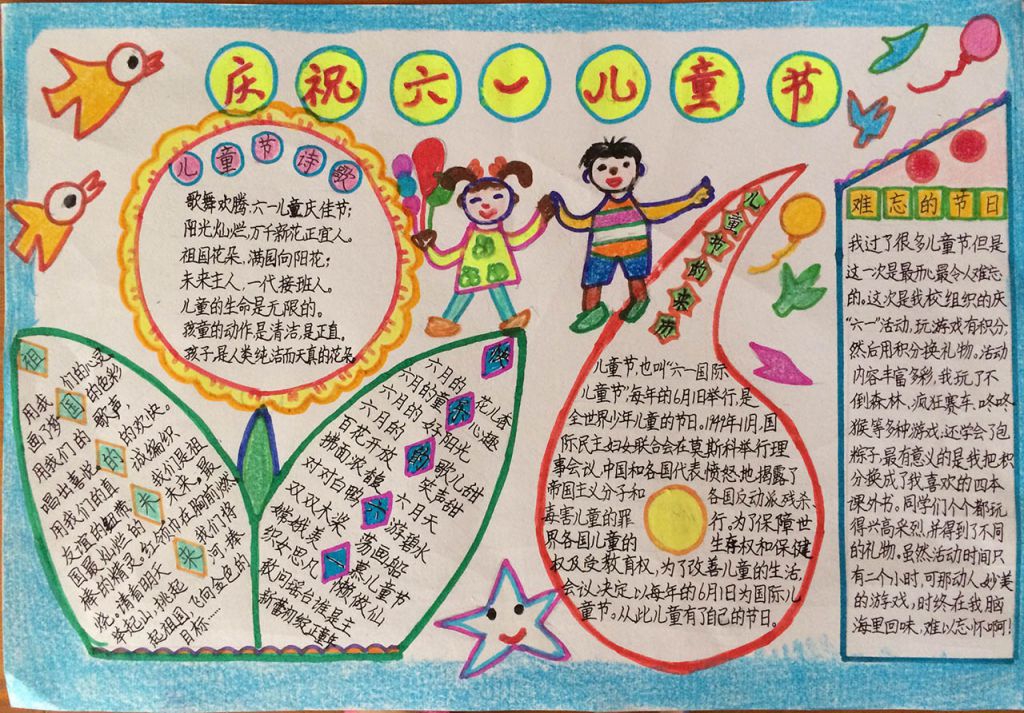 庆祝六一儿童节
儿童节诗歌
歌舞欢腾,六一儿童庆佳节;
阳光灿烂,万千新花正宜人。
祖国花朵,满园向阳花;
未来主人,一代接班人。
儿童的生命是无限的。
孩童的动作是清洁,是正直。
孩子,是人类纯洁而天真的花朵
祖国的未来
用我们的心灵
画了梦的色彩
用我们的歌声
唱出喜地的欢快。
用我们的真诚编织
友谊的纽带我们是祖
国最灿烂的未来,最
棒的精灵,红领巾在胸前燃
烧。请看明天我们将
举起山,挑起
起祖国,飞向金色的
目标……
快乐的六一
六月的花儿香
六月的童心趣
六月的好阳光
百花开放歌儿甜
拂面浓馥笑声甜
对对白鸭六月天
双双木桨游碧水
嫦娥羡荡画船
织女思凡慕儿童节
敢问瑶台谁是主
儿童节的来历
儿童节,也叫“六一国际
儿童节”,每年的6月1日举行,是
全世界少年儿童的节日。1949年11月,国
际民主妇女联合会在莫斯科举行理
事会议,中国和各国代表愤怒地揭露了
帝国主义分子和各国反动派残杀
毒害儿童的罪行。为了保障世
界各国儿童的生存权和保健
权及受教育权,为了改善儿童的生活,
会议决定以每年的6月1日为国际儿
童节。从此儿童有了自己的节日。
难忘的节日
我过了很多儿童节但是
这一次是最开心最令人难忘
的。这次是我校组织的庆
“六一”活动,玩游戏有积分
然后用积分换礼物。活动
内容丰富多彩,我玩了不
倒森林,疯狂赛车,咚咚
猴等多种游戏,还学会了包
粽子,最有意义的是我把积
分换成了我喜欢的四本
课外书。同学们个个都玩
得兴高采烈,并得到了不同
的礼物。虽然活动时间只
有二个小时,可那动人、妙美
的游戏,时终在我脑
海里回味,难以忘怀啊!